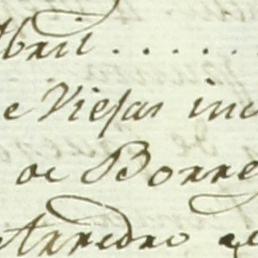 Abril . . . . . .
e Viejas inc
de Borre
Arredro